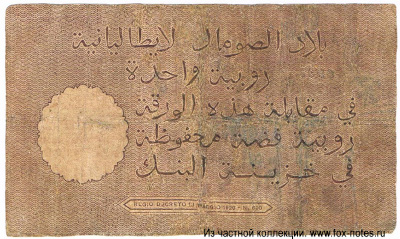 بلاد الصومال لايطاليانية
روبية واحدة
في مقابلة هذه الورقة
روبية فضة محفوظة
في خزينة البنك
Из частной коллекции. www.fox-notes.ru